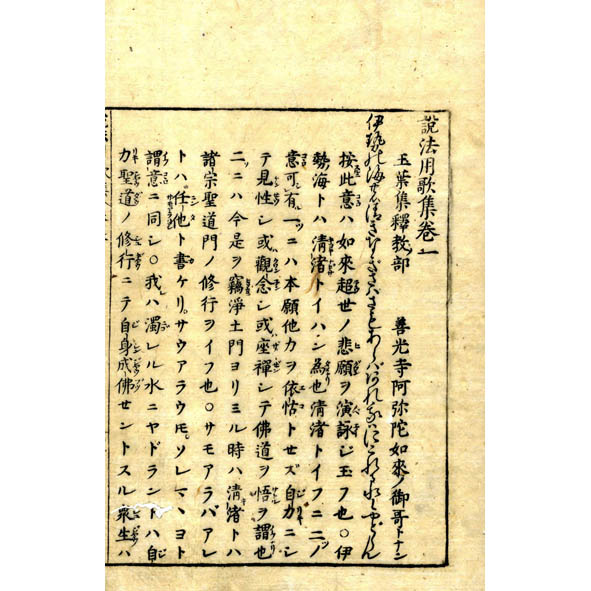 說法用歌集卷一
玉葉集釋教部　善光寺阿弥陀如來ノ御哥トナン
伊勢の海の清きなぎさはさもあらばあれ我はにごれる水にやどらん
按此意ハ如來超世ノ悲願ヲ演詠ジ玉フ也○伊
勢海トハ清渚トイハン為也清渚トイフニ二ノ
意可有一ツニハ本願他力ヲ依怙トセズ自力ニシ
テ見性シ或觀念シ或座禪シテ佛道ヲ悟ヲ謂也
二ニハ今是ヲ竊淨土門ヨリミル時ハ清渚トハ
諸宗聖道門ノ修行ヲイフ也○サモアラバアレ
トハ任他ト書ケリサウアラウトモソレマヽヨト
謂意ニ同シ○我ハ濁レル水ニヤドラントハ自
力聖道ノ修行ニテ自身成佛セントスル衆生ハ